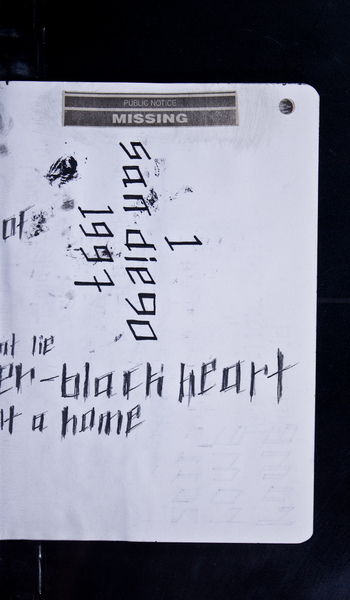 PUBLIC NOTICE
MISSING
1
san diego
1997
of
lie
er-black heart
a home